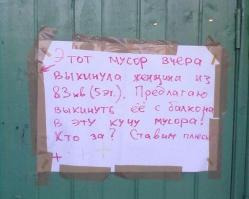 Этот мусор вчера
выкинула женщина из
83 кв (5 эт.). Предлагаю
выкинуть её с балкона
в эту кучу мусора!
Кто за? Ставим плюсы
+ +